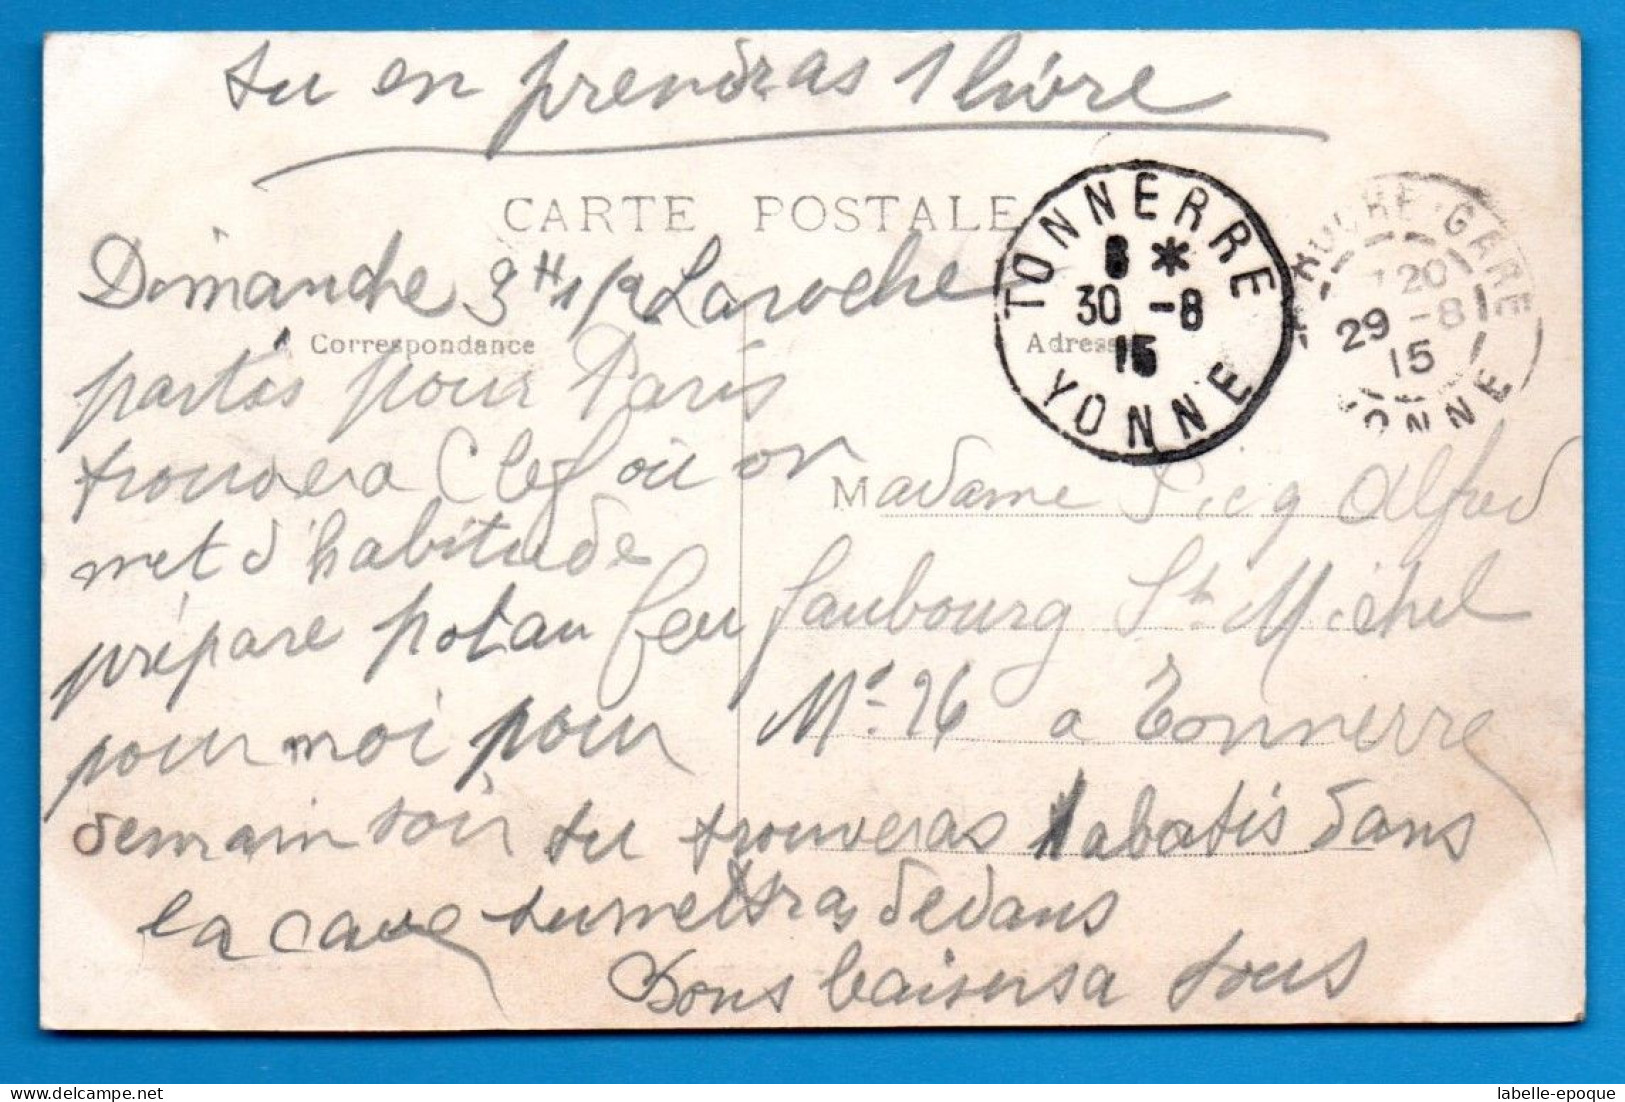 tu en prendras 1 livre
CARTE POSTALE
Correspondance
Adresse
TONNERRE
8 *
30 -8
15
YONNE
GARE
20
29 -8
15
YONNE
Dimanche 3H 1/2 Laroche
partés pour Paris
trouvera Clef où on
met d'habitude
prépare pot au feu
pour moi pour
demain soir tu trouveras 1 abatis dans
la cave tu mettras dedans
Bons baisers a tous
Madame Picq Alfred
faubourg St Michel
No 26 a Tonnerre
delcampe.net
labelle-epoque